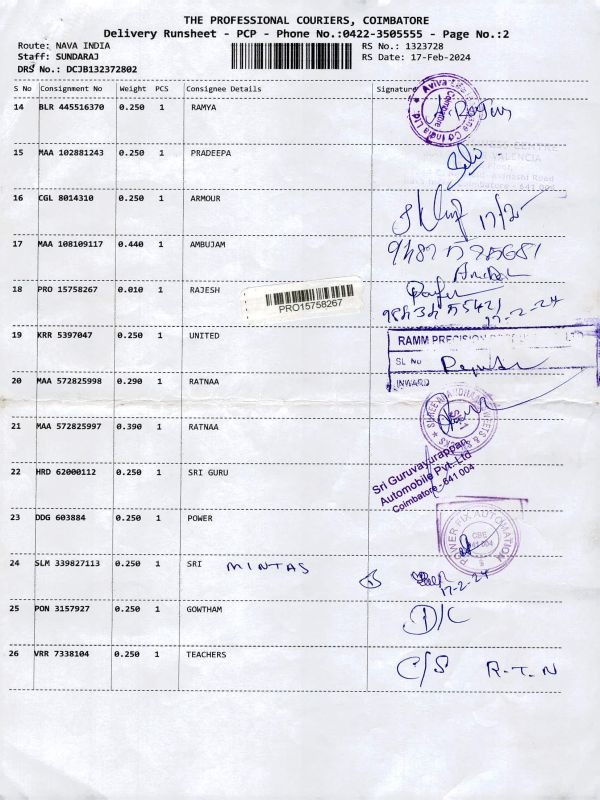 THE PROFESSIONAL COURIERS, COIMBATORE
Delivery Runsheet - PCP - Phone No.:0422-3505555 - Page No.:2
Route: NAVA INDIA
RS No.: 1323728
Staff: SUNDARAJ
RS Date: 17-Feb-2024
DRS No.: DCJB132372802
S No Consignment No Weight PCS Consignee Details Signature
14 BLR 445516370 0.250 1 RAMYA
15 MAA 102881243 0.250 1 PRADEEPA
VALENCIA
16 CGL 8014310 0.250 1 ARMOUR
17 MAA 108109117 0.440 1 AMBUJAM
18 PRO 15758267 0.010 1 RAJESH
PRO15758267
17-2-24
19 KRR 5397047 0.250 1 UNITED
RAMM PRECISION
SL No
INWARD
20 MAA 572825998 0.290 1 RATNAA
21 MAA 572825997 0.390 1 RATNAA
22 HRD 62000112 0.250 1 SRI GURU
Sri Guruvayurappan
Automobile Pvt. Ltd
Coimbatore - 641 004
23 DDG 603884 0.250 1 POWER
POWER FIX AUTOMATION
CBE
24 SLM 339827113 0.250 1 SRI MINTAS
17-2-24
25 PON 3157927 0.250 1 GOWTHAM
D/C
26 VRR 7338104 0.250 1 TEACHERS
C/S R.T.N